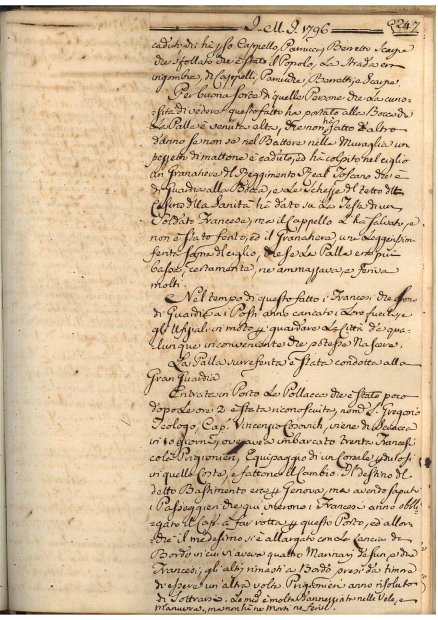 J. M. J. 1796
247
caduti, chi hè pso Cappello, Panucci, Berretto Scarpe
che sfollato che è stato il Popolo, La Strada era
ingombra di Cappelli, Panuche, Berretti, e Scarpe.
Per buona sorte di quelle Persone che La curio-
sità di vedere questo fatto ha portato alla Bocca
La Palla è venuta alta, che non hà fatto d'altro
danno se non se nel Battere nella Muraglia un
pezzetto di mattone è caduto, ed ha colpito nel ciglio
un Granatiere del Reggimento Real Toscano che è
di Guardia alla Bocca, e Le Schegge del tetto del
Casino della Sanità hè dato su La Testa di un
Soldato Francese, ma il Cappello L'hè salvato, e
non è stato ferito, ed il Granatiere, un Leggerissim
ferita Sopra il ciglio, Che se La Palla era più
bassa, certamente, ne ammazzava, e feriva
molti.
Nel tempo di questo fatto i Francesi che sono
di Guardia a i Posti anno caricato i Loro fucili, e
gli Ufiziali in moto p guardare La Città da qua-
lunque inconveniente che potesse Nascere.
La Palla surreferita è Stata condotta alla
Gran Guardia
Entrata in Porto La Pollacca che è stato poco
dopo Le ore 2 è stata riconosciuta, nom.ª S. Gregorio
Teologo, Cap. Vincenzo Covich, viene di
in 10 giorni, ove aveva imbarcato trenta Francesi
colà Prigionieri, Equipaggio di un Corsale
in quelle Coste, e fattone il Cambio. Il destino del
detto Bastimento era p Genova, ma avendo saputo
i Passeggieri che qui vi erono i Francesi anno obbli-
gato il Cap. a far rotta p questo Porto, ed allor-
chè il medesimo si è allargato con La Lancia da
Bordo in cui vi aveva quattro Marinari da fun, e due
Francesi, gli altri rimasti a Bordo presi da timore
di essere un'altra volta Prigionieri anno risoluto
di Sottrarsi. Le molto danneggiato nelle Vele, e
manuvra, ma non hà ne Morti ne feriti.